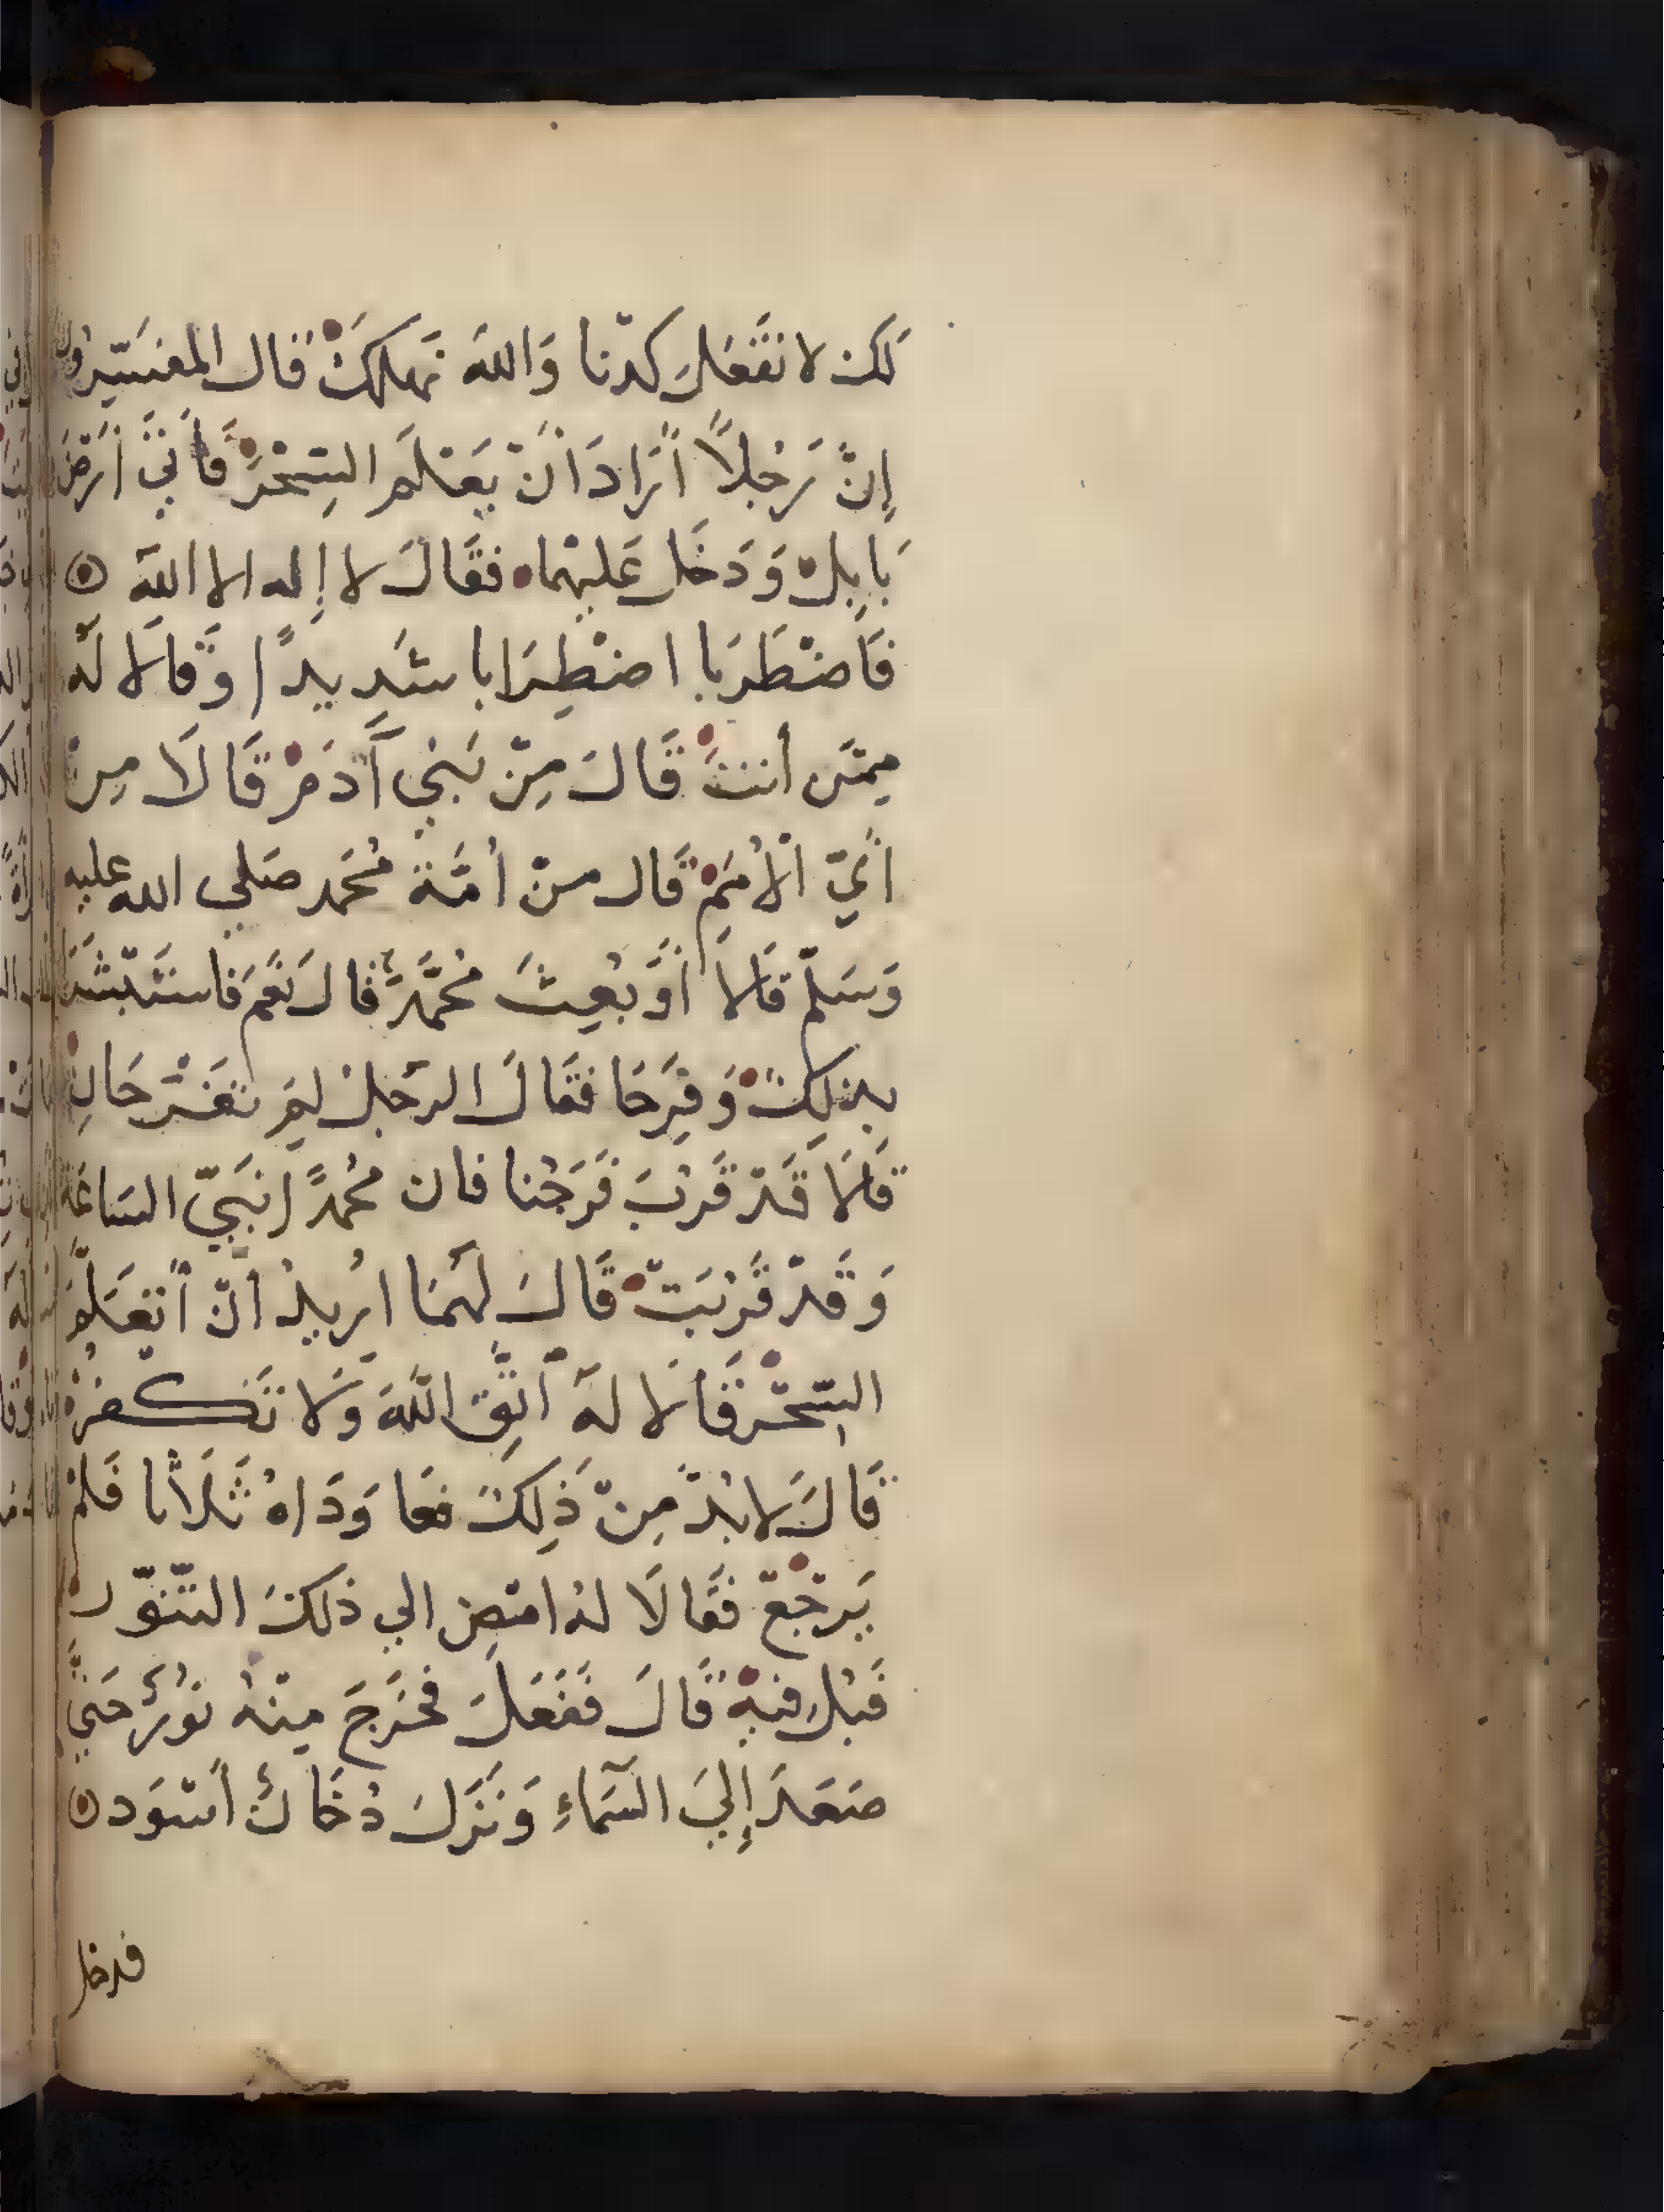 لكن لا نفعل كدنا وَاللهَ نهلكَ قال المفسّرون
إنّ رَجُلاً أرَادَ أنْ يعَتلَم السِّحْرَ فأتيَ أرَضْ
بَابِل وَدَخَل عَليهما فقَالَ لا إِله الا الله
فَاضْطَرَبا اضْطِرَابا شَدِيدًا وَقالا لَه
مِمّن أنت قَالَ مِنْ بَنِي آَدَمْ قَالَا مِنْ
أيّ الأُمَمِ قَال منْ أمَّة مُحَمد صَلي الله عليه
وَسَلّم قالا أَوَ بُعِثَ مُحَمَّدٌ قالَ نَعَم فاستَبْشَرَا
بِذلِكَ وَفرَحَا فقَالَ الرَّجلُ لِمَ تفَرْحَانِ
قالَا قَدْ قَرُبَ فَرَجُنا فان مُحمدًا نَبيّ السَاعَة
وَقدْ قَرُبَتْ قَالَ لَهمَا ارُيدُ أنْ أتعَلّمَ
السِّحْرَ فَقالا لهَ اتَّقِ اللَّهَ وَلا تَكفرْ
قَالَ لا بُدّ مِنْ ذَلِكَ فعَاوَدَاهُ ثَلَاثًا فَلمْ
يَرجْعْ فقَالَا لهُ امْضِ الي ذلكَ التنّوّر
فَبُل فيهِ قَالَ فَفَعَلَ فخَرَجَ مِنْهُ نوُرٌ حَتيَّ
صَعَدَ إِليَ السَّمَاءِ وَنَزَلَ دُخَانٌ أسْوَد
فدخل